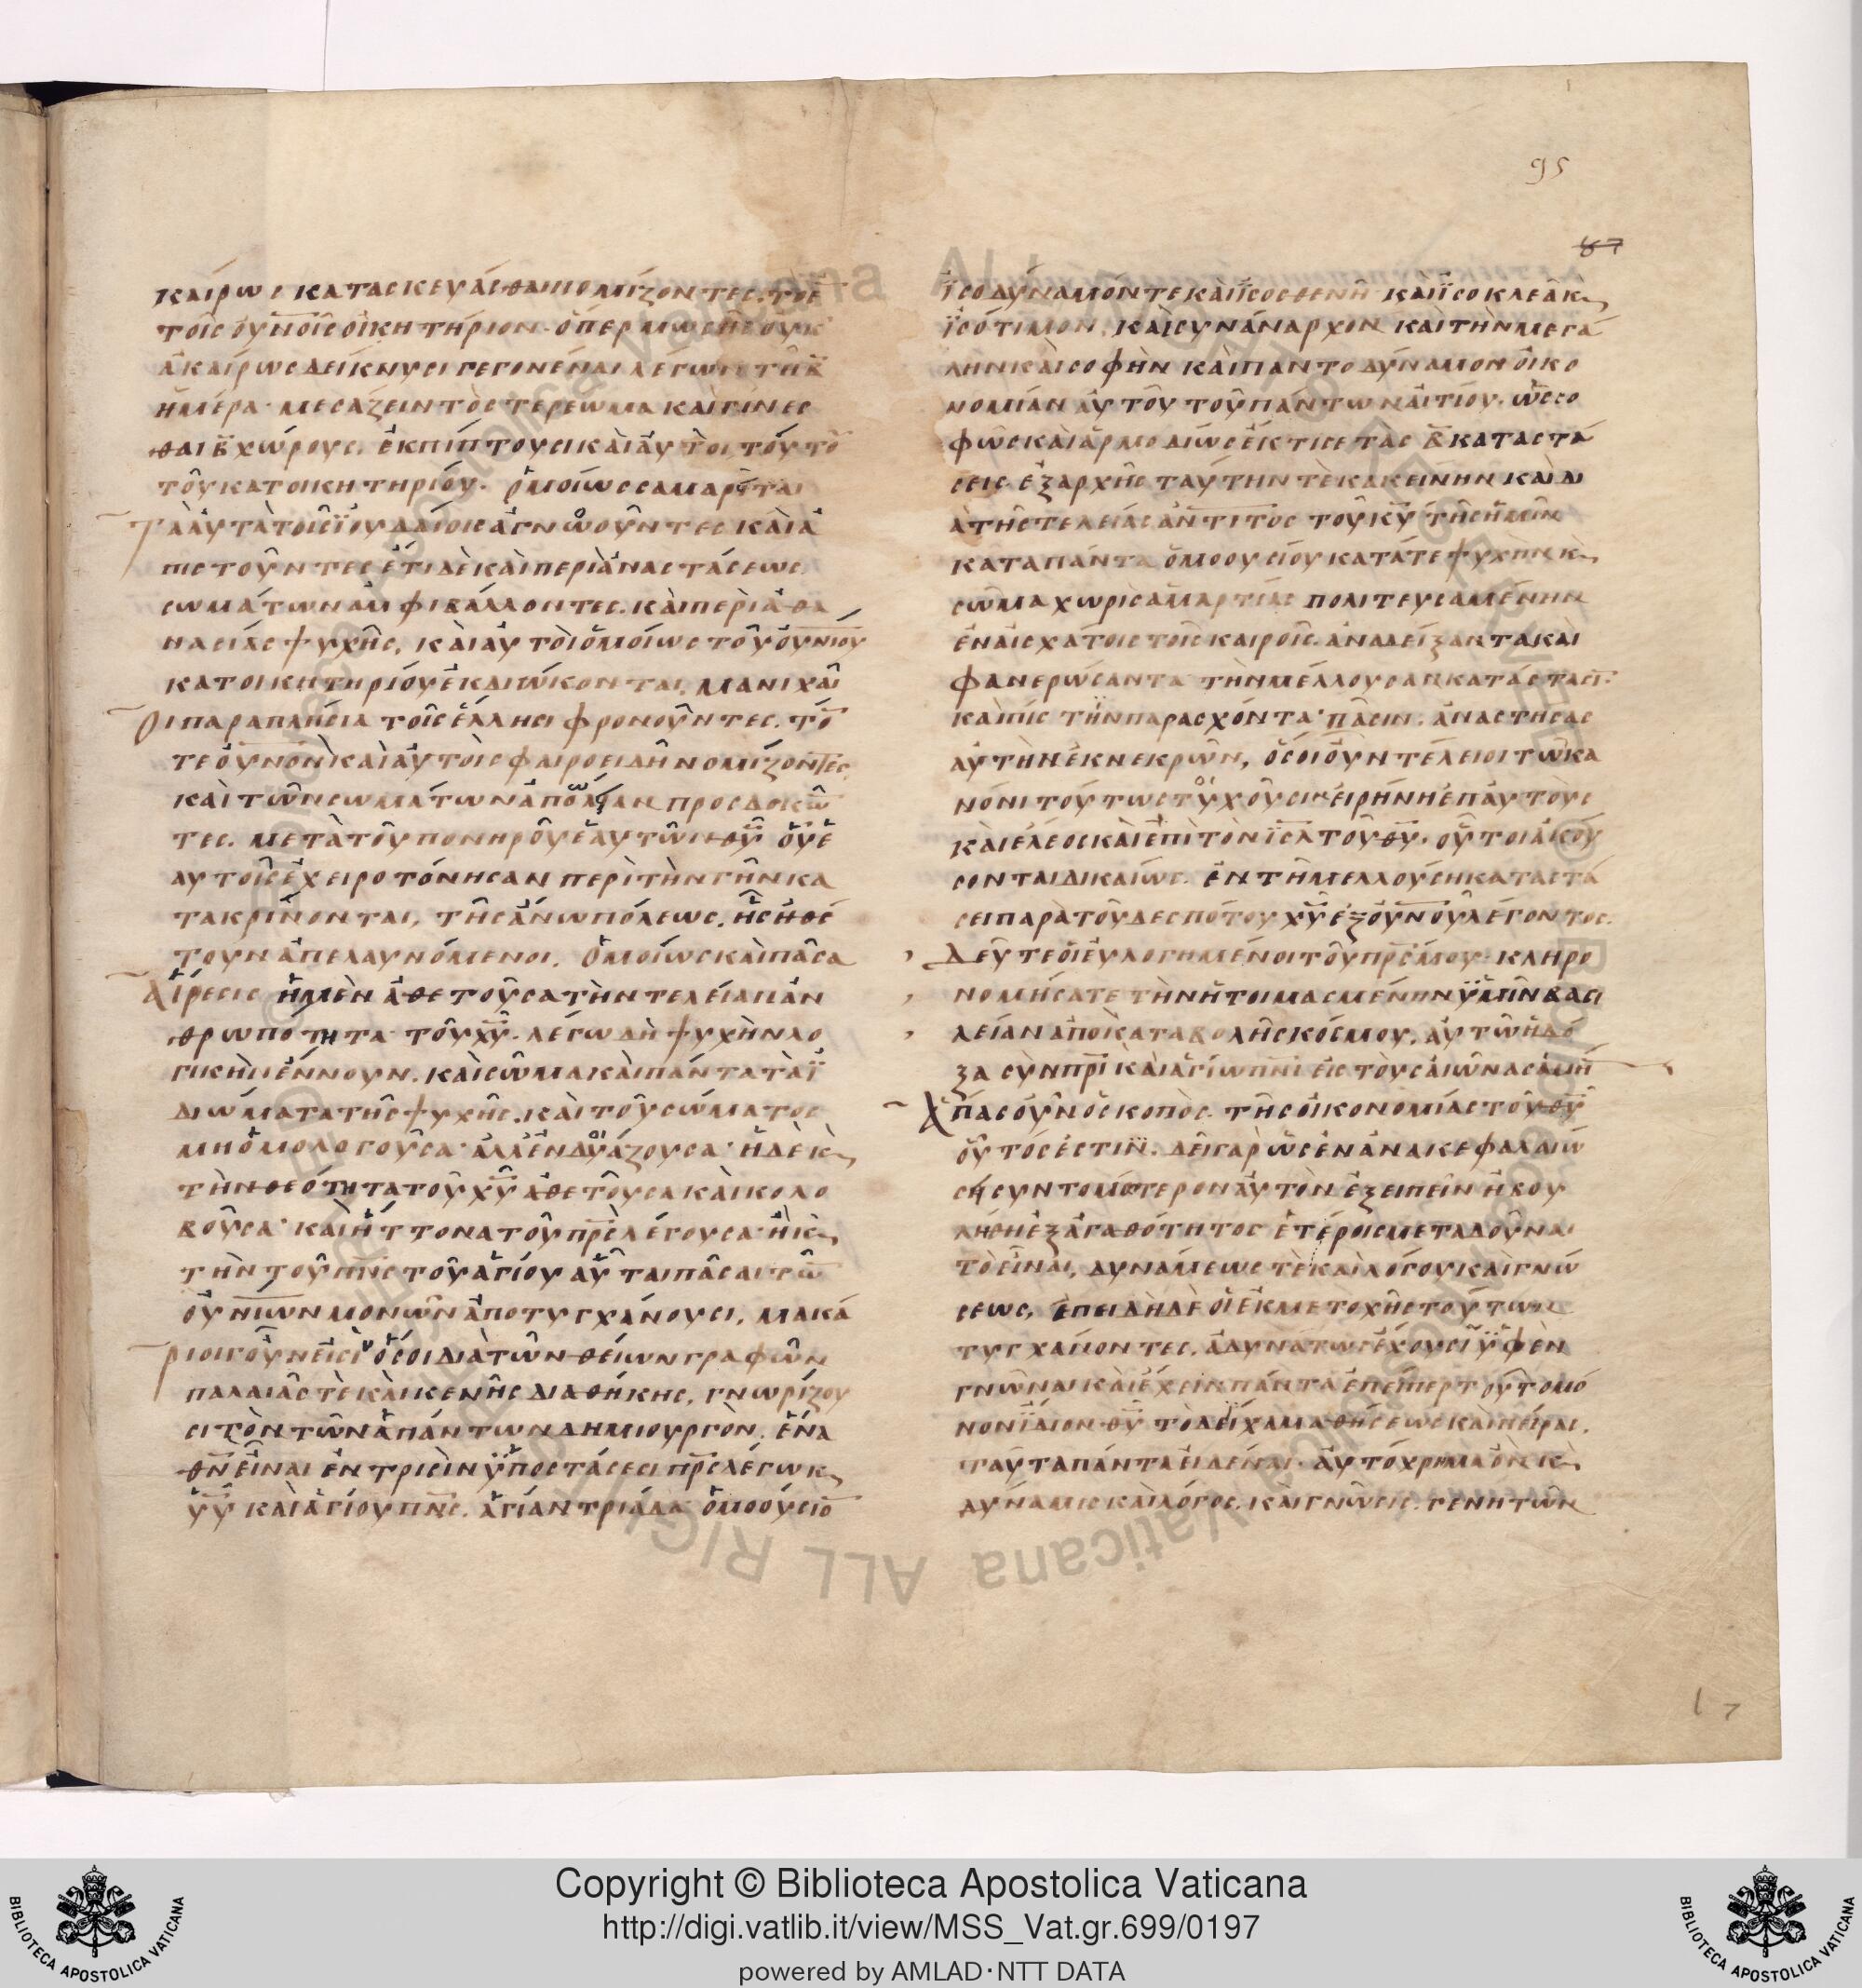 95
87
καίρως κατασκευάσθαι νομίζοντες. τὸ ἐ
τοῖς οὐνοῖς οἰκητήριον. ὅπερ μωσῆς οὐκ
ἀκαίρως δείκνυσι γεγονέναι λέγων τῆ β̄
ἡμέρα μεσάζειν τὸ στερέωμα καὶ γίνεσ
θαι β̄ χώρους, ἐκπίπτουσι καὶ αὐτοὶ τούτου
τοῦ κατοικητηρίου. ὁμοίως σαμαρῖται
τὰ αὐτὰ τοῖς ἰουδαίοις ἀγνοοῦντες καὶ ἀ
πιστοῦντες ἔτι δὲ καὶ περὶ ἀναστάσεως
σωμάτων ἀμφιβάλλοντες. καὶ περὶ ἀθα
νασίας ψυχῆς, καὶ αὐτοὶ ὁμοίως τοῦ οὐνίου
κατοικητηρίου ἐκδιώκονται, μανιχαῖ
οι παραπλησία τοῖς ἕλλησι φρονοῦντες. τό
τε οὐνὸν καὶ αὐτοὶ σφαιροειδῆ νομίζοντες
καὶ τῶν σωμάτων ἀπώλειαν προσδοκῶ
τες. μετὰ τοῦ πονηροῦ ἑαυτῶν θῡ οὗ ἑ
αυτοῖς ἐχειροτόνησαν περὶ τὴν γῆν κα
τακρίνονται, τῆς ἄνω πόλεως, ἧς ἠθέ
τουν ἀπελαυνόμενοι. ὁμοίως καὶ πᾶσα
αἵρεσις ἡ μὲν ἀθετοῦσα τὴν τελείαν ἀν
θρωπότητα τοῦ χῡ. λέγω δὴ ψυχὴν λο
γικὴν ἔννουν. καὶ σῶμα καὶ πάντα τὰ ἰ
διώματα τῆς ψυχῆς. καὶ τοῦ σώματος
μὴ ὁμολογοῦσα ἀλλ' ἐνδοιάζουσα ἡ δὲ κ
τὴν θεότητα τοῦ χῡ ἀθετοῦσα καὶ κολο
βοῦσα καὶ ἥττονα τοῦ πρ̄ς λέγουσα ἢ κ
τὴν τοῦ πν̄ς τοῦ ἁγίου αὗται πᾶσαι τῶ
οὐνίων μονῶν ἀποτυγχάνουσι, μακά
ριοι γοῦν εἰσὶν ὅσοι διὰ τῶν θείων γραφῶν
παλαιᾶς τὲ καὶ κενῆς διαθήκης, γνωρίζου
σι τὸν τῶν ἁπάντων δημιουργὸν, ἕνα
θν̄ εἶναι ἐν τρισὶν ὑποστάσεσι πρ̄ς λέγω κ
ῡῡ καὶ ἁγίου πν̄ς. ἁγίαν τριάδα ὁμοούσιο
ἰσοδύναμόν τε καὶ ἰσοσθενῆ καὶ ἰσοκλεᾶ κ
ἰσότιμον, καὶ συνάναρχον καὶ τὴν μεγά
λην καὶ σοφὴν καὶ παντοδύναμον οἰκο
νομίαν αὐτοῦ τοῦ πάντων αἰτίου. ὡς σο
φῶς καὶ ἁρμοδίως ἔκτισε τὰς β̄ καταστά
σεις ἐξ ἀρχῆς ταύτην τὲ κακείνην καὶ δι
ὰ τῆς τελείας ἀν̄τιτος τοῦ κῡ τῆς ἡμῖν
κατα πάντα ὁμοουσίου κατά τε ψυχὴν κ
σῶμα χωρὶς ἁμαρτίας πολιτευσαμένην
ἐν αἰσχάτοις τοῖς καιροῖς. ἀναδείξαντα καὶ
φανερώσαντα τὴν μέλλουσαν κατάστασι
καὶ πίστην παρασχόντα πᾶσιν. ἀναστήσας
αὐτὴν ἐκ νεκρῶν, ὅσοι οὖν τέλειοι τῶ κα
νόνι τούτω στοιχοῦσιν εἰρήνη ἐπ' αὐτοὺς
καὶ ἔλεος καὶ ἐπὶ τὸν ῑσ̄λ τοῦ θῡ. οὗτοι ἀκού
σονται δικαίως. ἐν τῆ μελλούση καταστά
σει παρὰ τοῦ δεσπότου χῡ ἐξ οὐνοῦ λέγοντος.
Δεῦτε οἱ εὐλογημένοι τοῦ πρ̄ς μου. κληρο
νομήσατε τὴν ἡτοιμασμένην ὑμῖν βασι
λείαν ἀπὸ καταβολῆς κόσμου, αὐτῶ ἡ δό
ξα σὺν πρ̄ῑ καὶ ἁγίω πν̄ῑ εἰς τοὺς αἰῶνας ἀμή
Ἅπας οὖν ὁ σκοπὸς τῆς οἰκονομίας τοῦ θῡ
οὗτός ἐστιν. δεῖ γὰρ ὡς ἐν ἀνακεφαλαιώ
σι συντομώτερον αὐτὸν ἐξειπεῖν ἠβου
λήθη ἐξ ἀγαθότητος ἑτέροις μεταδοῦναι
τὸ εἶναι, δυνάμεως τὲ καὶ λόγου καὶ γνώ
σεως, ἐπειδὴ δὲ οἱ ἐκ μετοχῆς τούτων
τυγχάνοντες. ἀδυνάτως ἔχουσιν ὑφ' ἓν
γνῶναι καὶ ἔχειν πάντα ἐπείπερ τοῦτο μό
νον ἴδιον θῡ τὸ δίχα μαθήσεως καὶ πείρας,
ταῦτα πάντα εἰδέναι. αὐτόχρημα ὂν κ
δύναμις καὶ λόγος. καὶ γνῶσις. γενητῶν
Copyright © Biblioteca Apostolica Vaticana
http://digi.vatlib.it/view/MSS_Vat.gr.699/0197
powered by AMLAD·NTT DATA
BIBLIOTECA APOSTOLICA VATICANA
BIBLIOTECA APOSTOLICA VATICANA